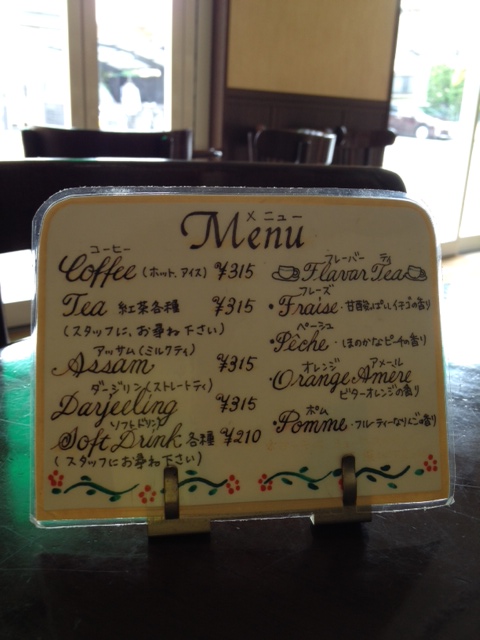 メニュー
Menu
コーヒー
Coffee (ホット、アイス) ¥315
Tea 紅茶各種 ¥315
(スタッフに、お尋ね下さい)
アッサム(ミルクティ)
Assam ¥315
ダージリン(ストレートティ)
Darjeeling ¥315
ソフトドリンク
Soft Drink 各種 ¥210
(スタッフにお尋ね下さい)
フレーバー ティ
Flavar Tea
フレーズ
・Fraise・甘酸っぱいイチゴの香り
ペーシュ
・Pêche・ほのかなピーチの香り
オレンジ アメール
Orange Amère
ビターオレンジの香り
ポム
・Pomme・フルーティーなりんごの香り